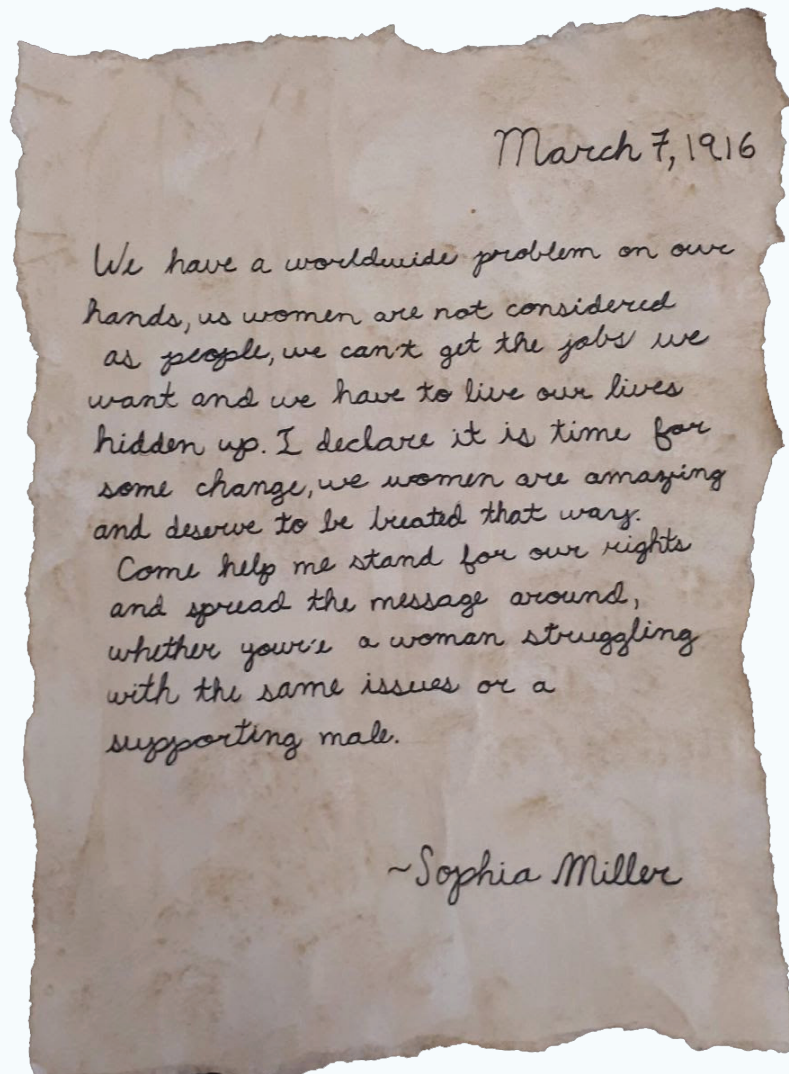 March 7, 1916
We have a worldwide problem on our
hands, us women are not considered
as people, we can't get the jobs we
want and we have to live our lives
hidden up. I declare it is time for
some change, we women are amazing
and deserve to be treated that way.
Come help me stand for our rights
and spread the message around,
whether your'e a woman struggling
with the same issues or a
supporting male.
~Sophia Miller